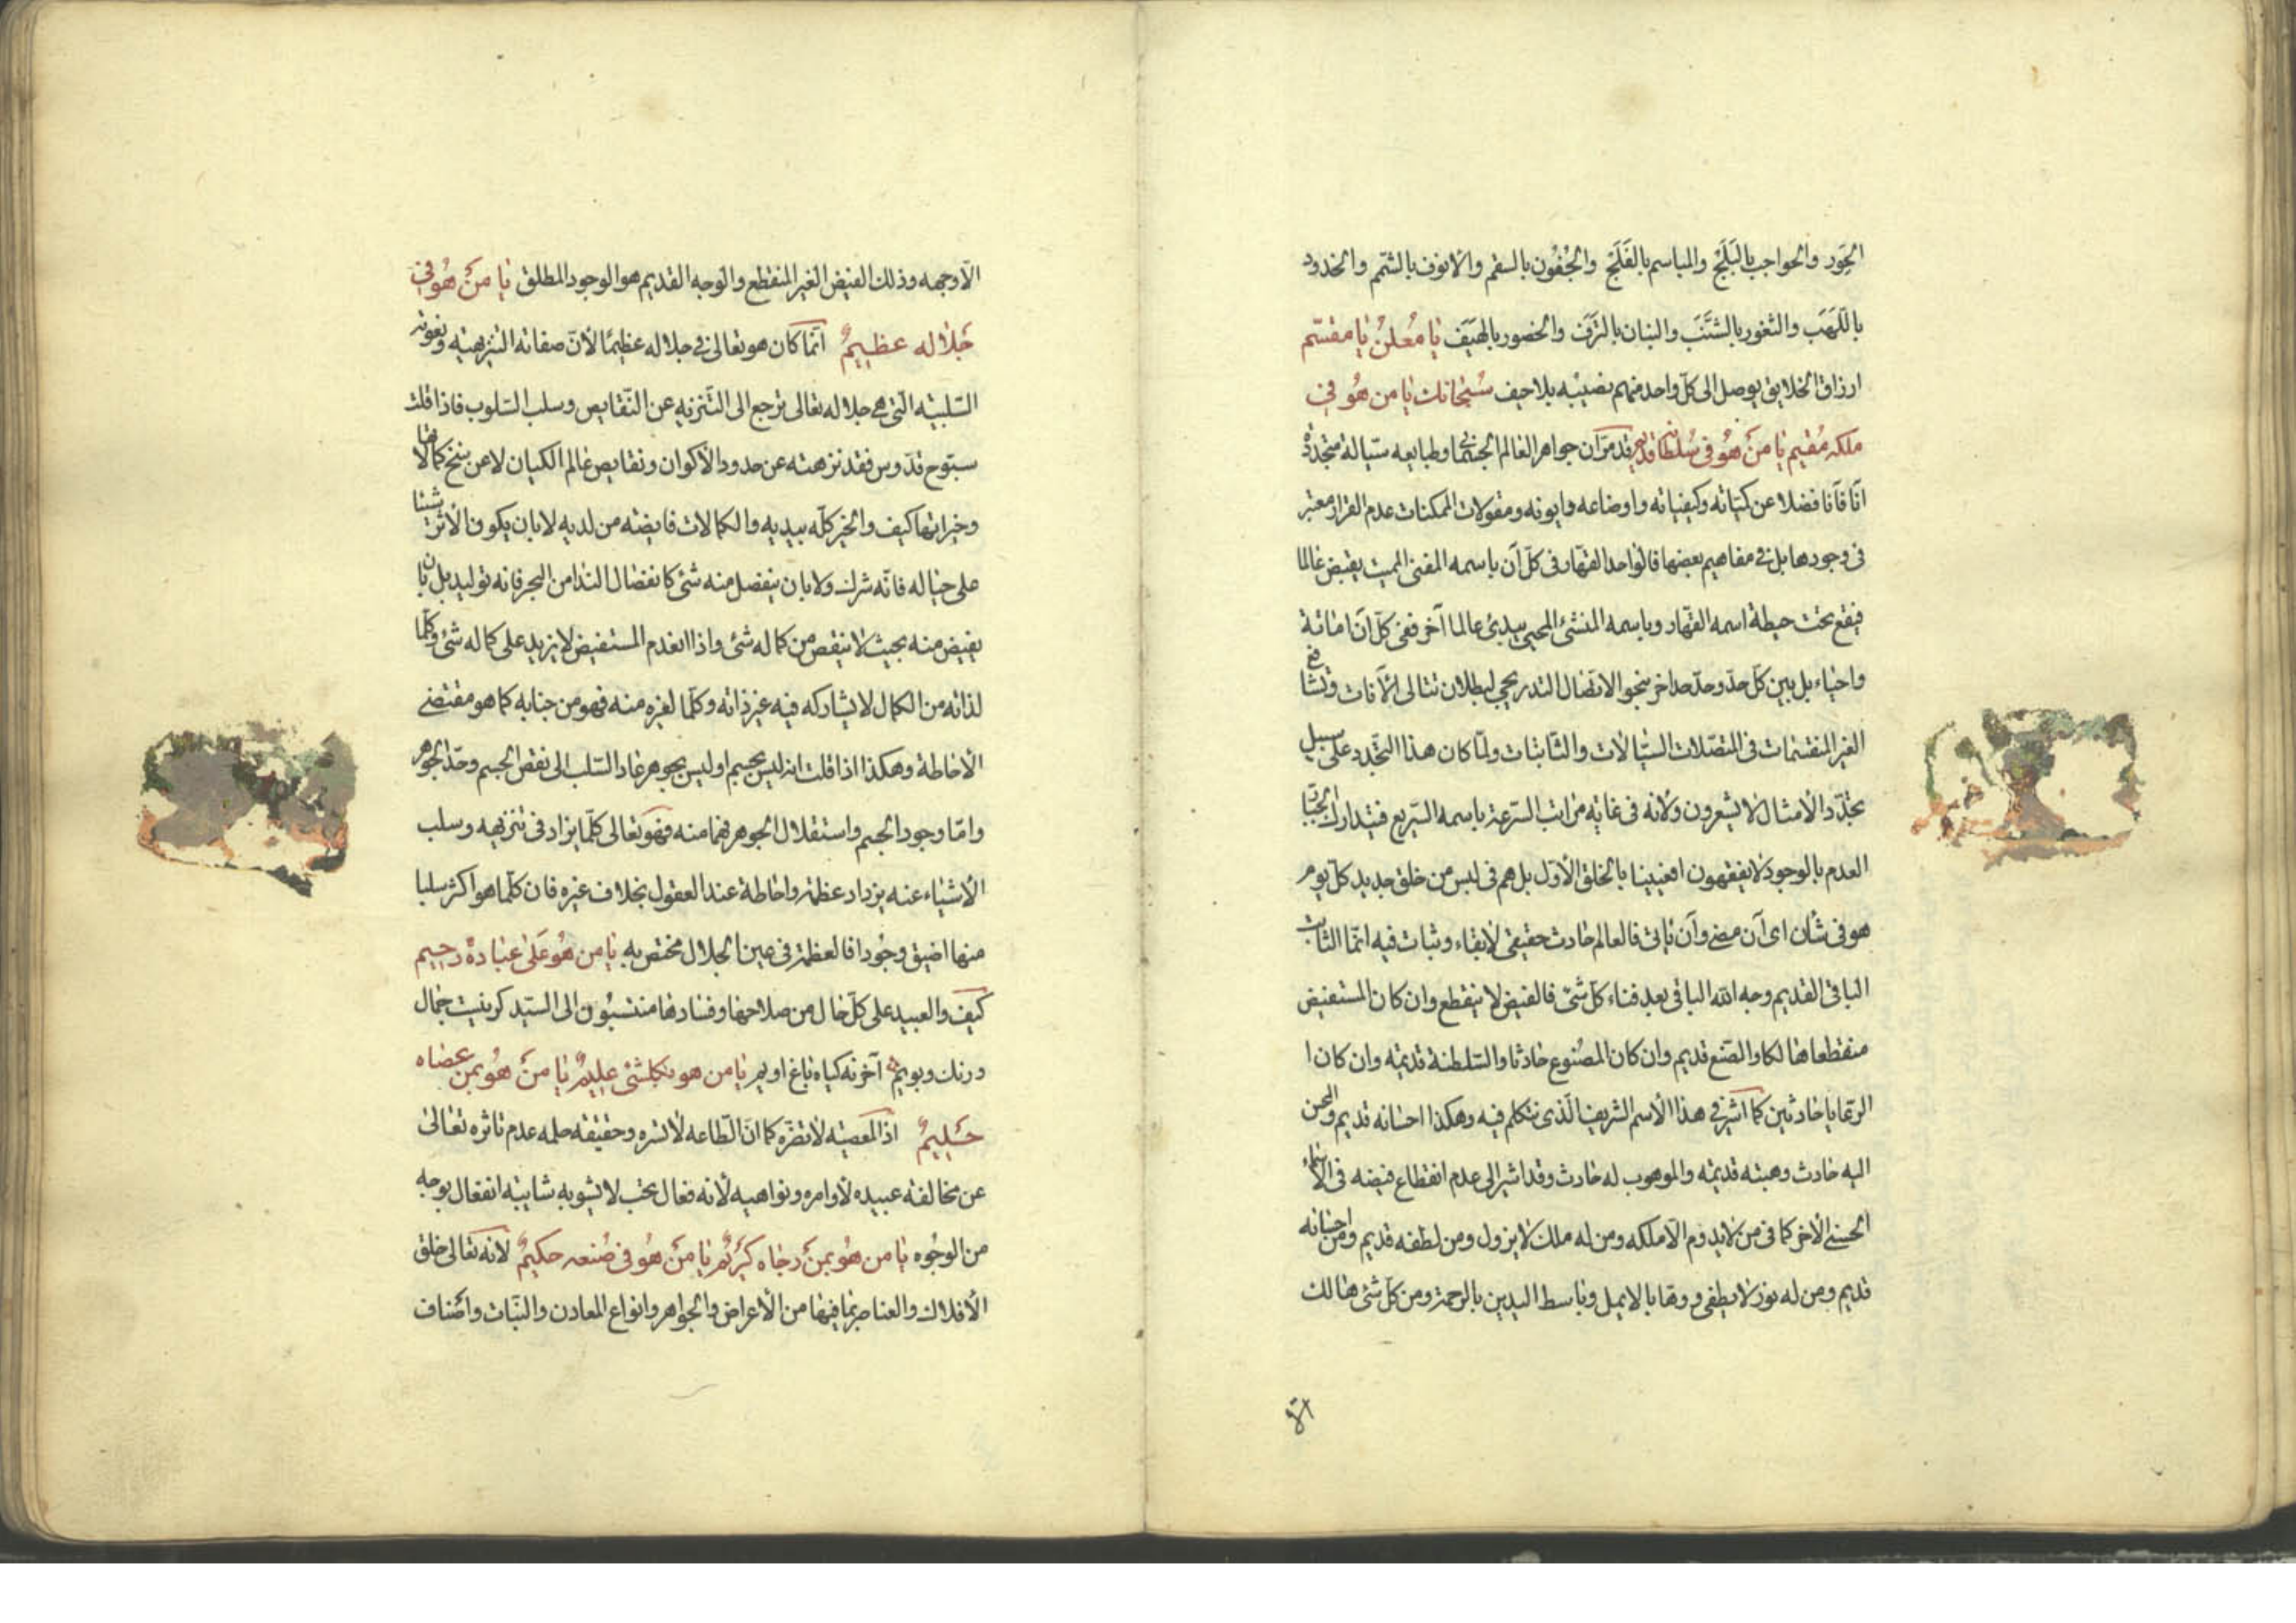 الحَوَر والحواجب بالبَلَج والمباسم بالفَلَج والجُفُون بالسقم والانوف بالشمم والخدود
باللَهَب والثغور بالشَنَب والبنان بالتَرَف والخصور بالهَيَف يا مُعلنُ يا مقسّم
ارزاق الخلايق يوصل الى كلّ واحد منهم نصيبه بلا حيف سُبحانك يا من هُو فى
ملكه مُقيم يا مَن هُو فى سُلطانه قديم قد مرّ ان جواهر العالم الجسمانى وطبايعه سيّالة متجدّدة
انًا فآنا فضلا عن كميّاته وكيفياته واوضاعه وايونه ومقولات الممكنات عدم القرار معتبر
فى وجودها بل فى مفاهيم بعضها فالواحد القهّار فى كلّ آن باسمه المفنى المميت يقبض عالما
فيقع تحت حيطة اسمه القهّار وباسمه المنشئ المحيى يبدئ عالما آخر ففى كلّ آن اماتة
واحياء بل بين كلّ حدّ وحدّ حداخر بنحو الاتصال التدريجى لبطلان تتالى الآنات وتشافع
الغير المنقسمات فى المتصّلات السيّالات والثّابتات ولمّا كان هذا التجدّد على سبيل
تجدّد الأمثال لا يشعرون ولأنه فى غاية مراتب السّرعة باسمه السّريع فيتدارك الجبّار
العدم بالوجود لا يفقهون افعيينا بالخلق الأوّل بل هم فى لبس من خلق جديد كلّ يوم
هو فى شأن اى آن مضى وآن يأتى فالعالم حادث حقيقى لابقاء وثبات فيه انّما الثابت
الباقى القديم وجه الله الباقى بعد فناء كل شئ فالفيض لا ينقطع وان كان المستفيض
منقطعا هالكا والصّنع قديم وان كان المصنوع حادثا والسّلطنة قديمة وان كان ا
الرّعايا حادثين كما اشير فى هذا الأسم الشريف الّذى نتكلم فيه وهكذا احسانه قديم والمحسن
اليه حادث وهبته قديمة والموهوب له حادث وقد اشير الى عدم انقطاع فيضه فى الأسماء
الحسنى الأخر كما فى من لا يدوم الّا ملكه ومن له ملك لا يزول ومن لطفه قديم ومن احسانه
قديم ومن له نور لا يطفى و وهابا لا يمل وباسط اليدين بالرحمة ومن كلّ شئ هالك
الّا وجهه وذلك الفيض الغير المنقطع والوجه القديم هو الوجود المطلق يا مَنْ هُو فى
جَلاله عظيمٌ انّما كان هو تعالى فى جلاله عظيمًا لأنّ صفاته التنزيهيّة ونعوته
السّلبيّة الّتى هى جلاله تعالى ترجع الى التّنزيه عن النّقايص وسلب السّلوب فاذا قلت
سبّوح قدّوس فقد نزهته عن حدود الأكوان ونقايص عالم الكيان لا عن سنخ كمالاتها
وخيراتها كيف والخير كلّه بيديه والكمالات فايضة من لديه لا بان يكون الأثر شيئا
على حياله فانّه شرك ولا بان ينفصل منه شئ كانفصال الندا من البحر فانه توليد بل بان
يفيض منه بحيث لا ينقص من كماله شئ واذا انعدم المستفيض لا يزيد على كماله شئ وكلّما
لذاته من الكمال لا يشاركه فيه غير ذاته وكلّما لغيره منه فهو من جنابه كما هو مقتضى
الأحاطة وهكذا اذا قلت انه ليس بجسم او ليس بجوهر عاد السّلب الى نقص الجسم وحدّ الجوهر
وامّا وجود الجسم واستقلال الجوهر فهما منه فهو تعالى كلّما يزاد فى تنزيهه وسلب
الأشياء عنه يزداد عظمة واحاطة عند العقول بخلاف غيره فان كلّما هو اكثر سلبا
منها اضيق وجودا فالعظمة فى عين الجلال مختص به يا من هُو عَلى عبَاده رحيم
كيف والعبيد على كلّ حال من صلاحها وفسادها منتسبون الى السيّد كر نيست جمال
ورنك وبويم آخر نه كياه باغ اويم يا من هو بكلشئ عليمٌ يا مَن هُو بمن عصَاه
حَليمٌ اذ المعصية لا تضرّه كما انّ الطّاعة لا تسره وحقيقة حلمه عدم تاثره تعالى
عن مخالفة عبيده لأوامره ونواهيه لأنه فعال بحت لا يشوبه شايبة انفعال بوجه
من الوجُوه يا من هُو بمَنْ رجَاه كريمٌ يا مَن هُو فى صُنعه حكيمٌ لأنه تعالى خلق
الأفلاك والعناصر بما فيها من الأعراض والجواهر وانواع المعادن والنّبات واصناف